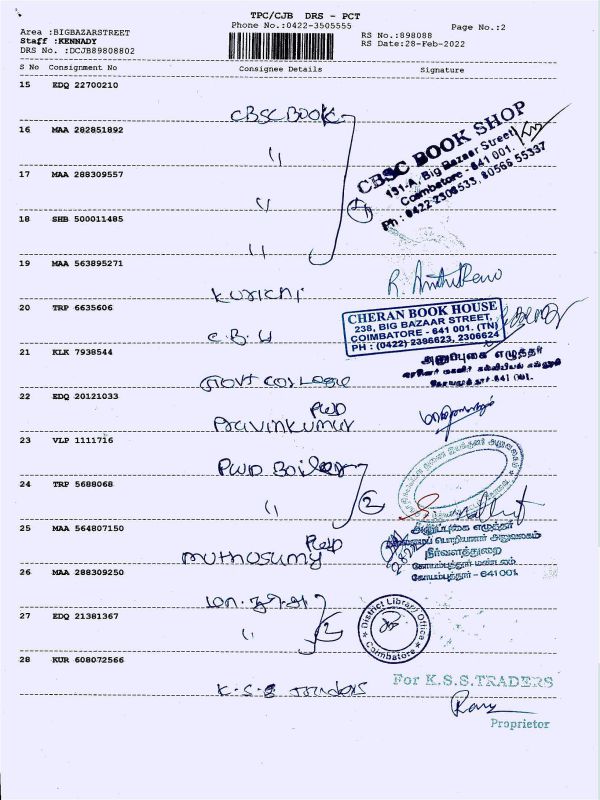 TPC/CJB DRS - PCT
Phone No.:0422-3505555
Page No.:2
Area :BIGBAZARSTREET
Staff :KENNADY
DRS No. :DCJB89808802
RS No.:898088
RS Date:28-Feb-2022
S No Consignment No Consignee Details Signature
15 EDQ 22700210
CBSC BOOK
16 MAA 282851892
"
17 MAA 288309557
"
18 SHB 500011485
"
4
CBSC BOOK SHOP
131-A, Big Bazaar Street
Coimbatore - 641 001.
Ph : 0422-2306533, 80566 55337
19 MAA 563895271
Kurichi
20 TRP 6635606
C.B.H
CHERAN BOOK HOUSE
238, BIG BAZAAR STREET,
COIMBATORE - 641 001. (TN)
PH : (0422) 2396623, 2306624
21 KLK 7938544
Govt College
அனுப்புகை எழுத்தர்
22 EDQ 20121033
PWD
Pravinkumar
23 VLP 1111716
PWD Boiler
24 TRP 5688068
"
2
25 MAA 564807150
PWD
muthusamy
அனுப்புகை எழுத்தர்
பொறியாளர் அலுவலகம்
நீர்வளத்துறை
கோயம்புத்தூர் மண்டலம்
கோயம்புத்தூர் - 641 001.
26 MAA 288309250
27 EDQ 21381367
"
2
District Library Office
Coimbatore
28 KUR 608072566
K.S.S Traders
For K.S.S.TRADERS
Proprietor